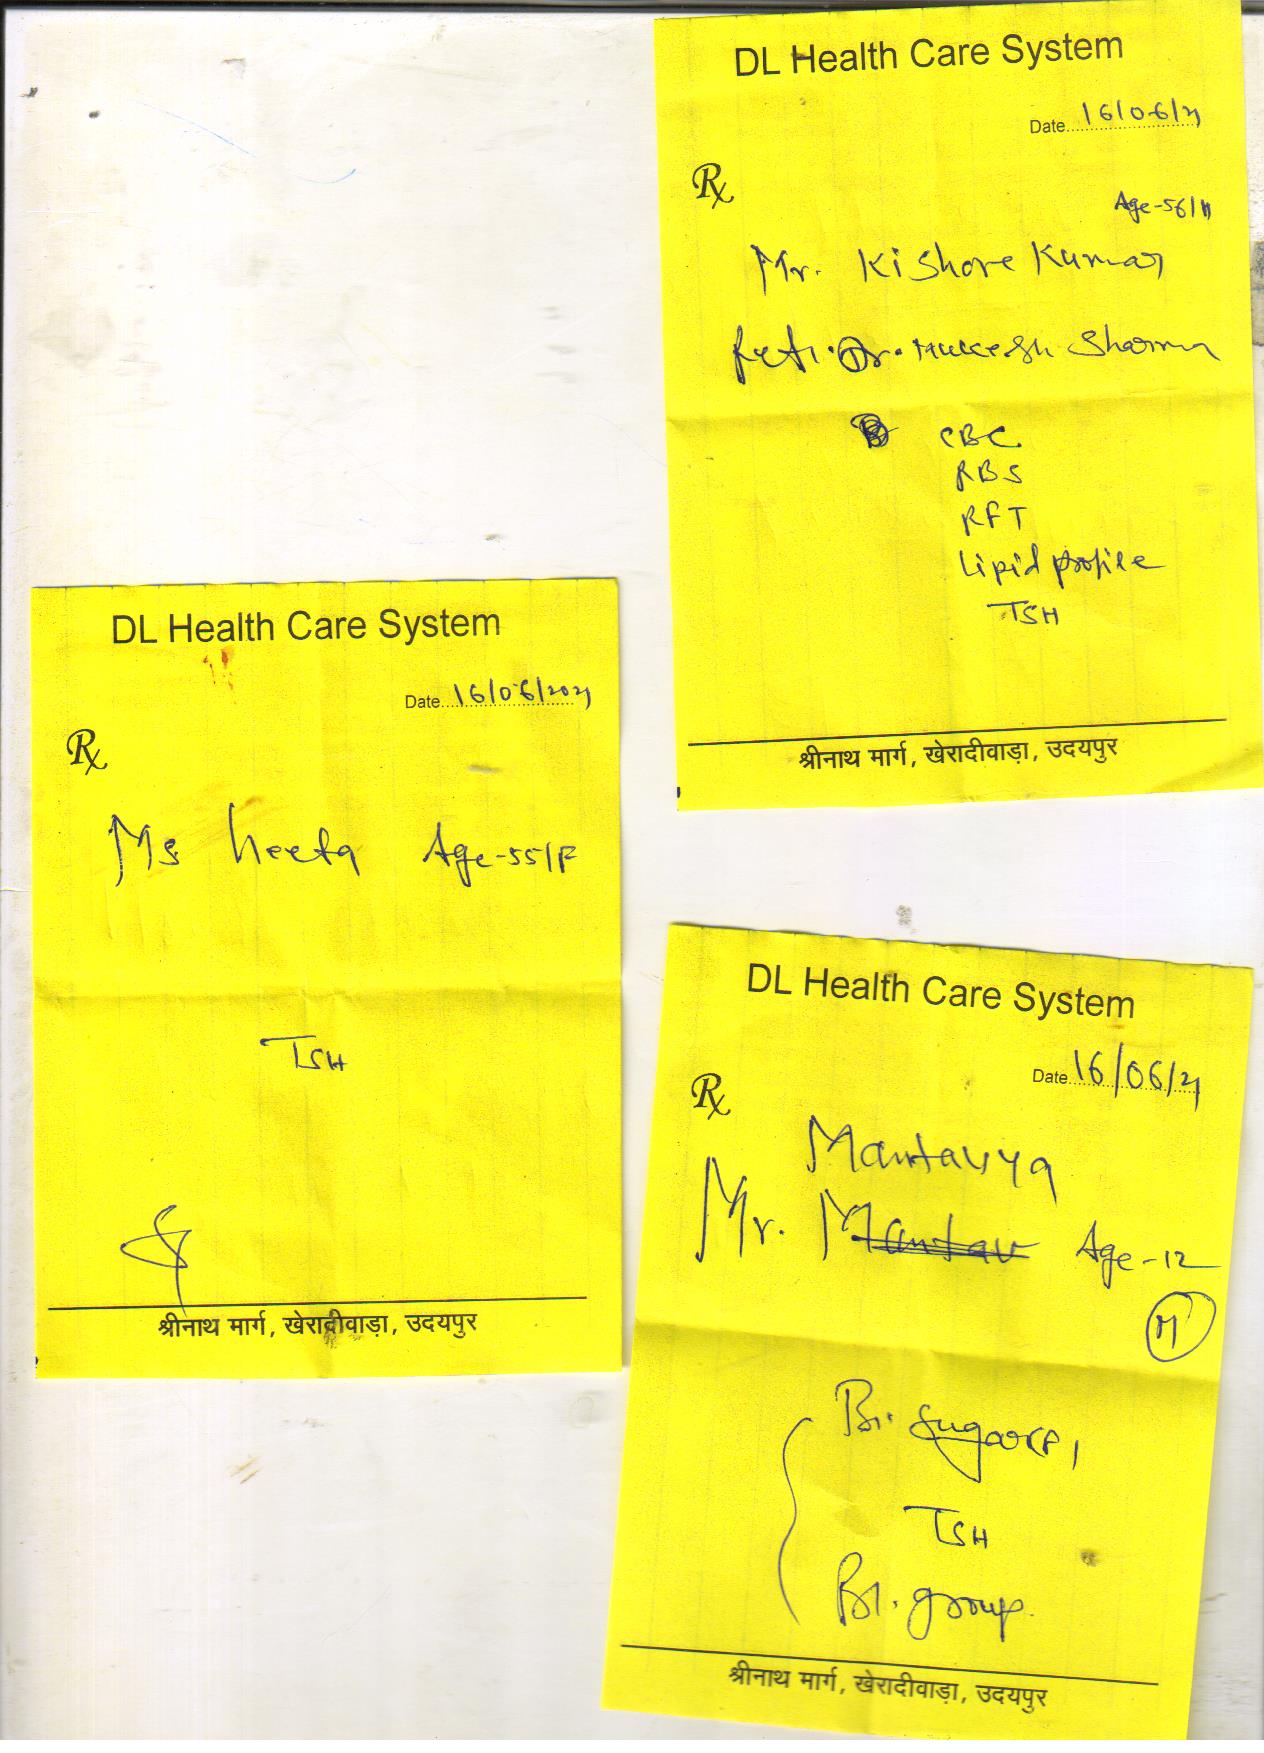 DL Health Care System
Date 16/06/21
Rx
Age-56/M
Mr. Kishore Kumar
Ref. Dr. Mukesh Sharma
CBC
RBS
RFT
Lipid profile
TSH
श्रीनाथ मार्ग, खेरादीवाड़ा, उदयपुर
DL Health Care System
Date 16/06/2021
Rx
Ms Neeta Age-55/F
TSH
श्रीनाथ मार्ग, खेरादीवाड़ा, उदयपुर
DL Health Care System
Date 16/06/21
Rx
Mantavya
Mr. Mantav Age-12
M
Bl. Sugar
TSH
Bl. group
श्रीनाथ मार्ग, खेरादीवाड़ा, उदयपुर